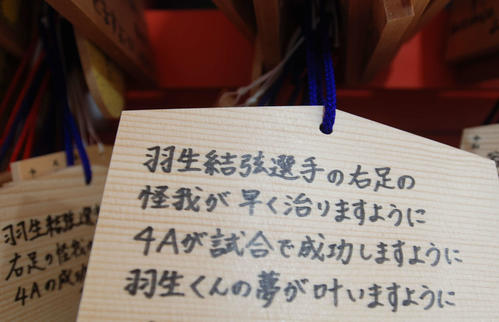 羽生結弦選手の右足の
怪我が早く治りますように
4Aが試合で成功しますように
羽生くんの夢が叶いますように
羽生結弦選
右足の怪我
4Aの成功